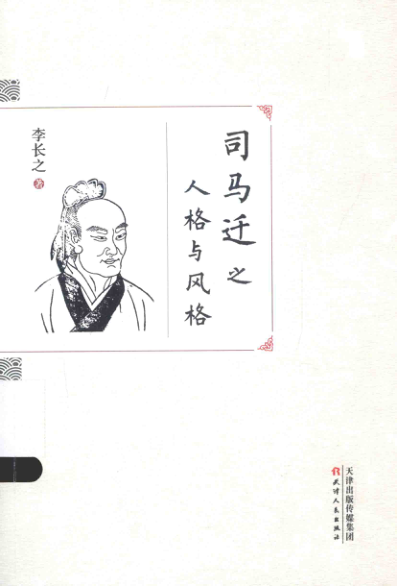 司马迁之
人格与风格
李长之 著
天津出版传媒集团
天津人民出版社